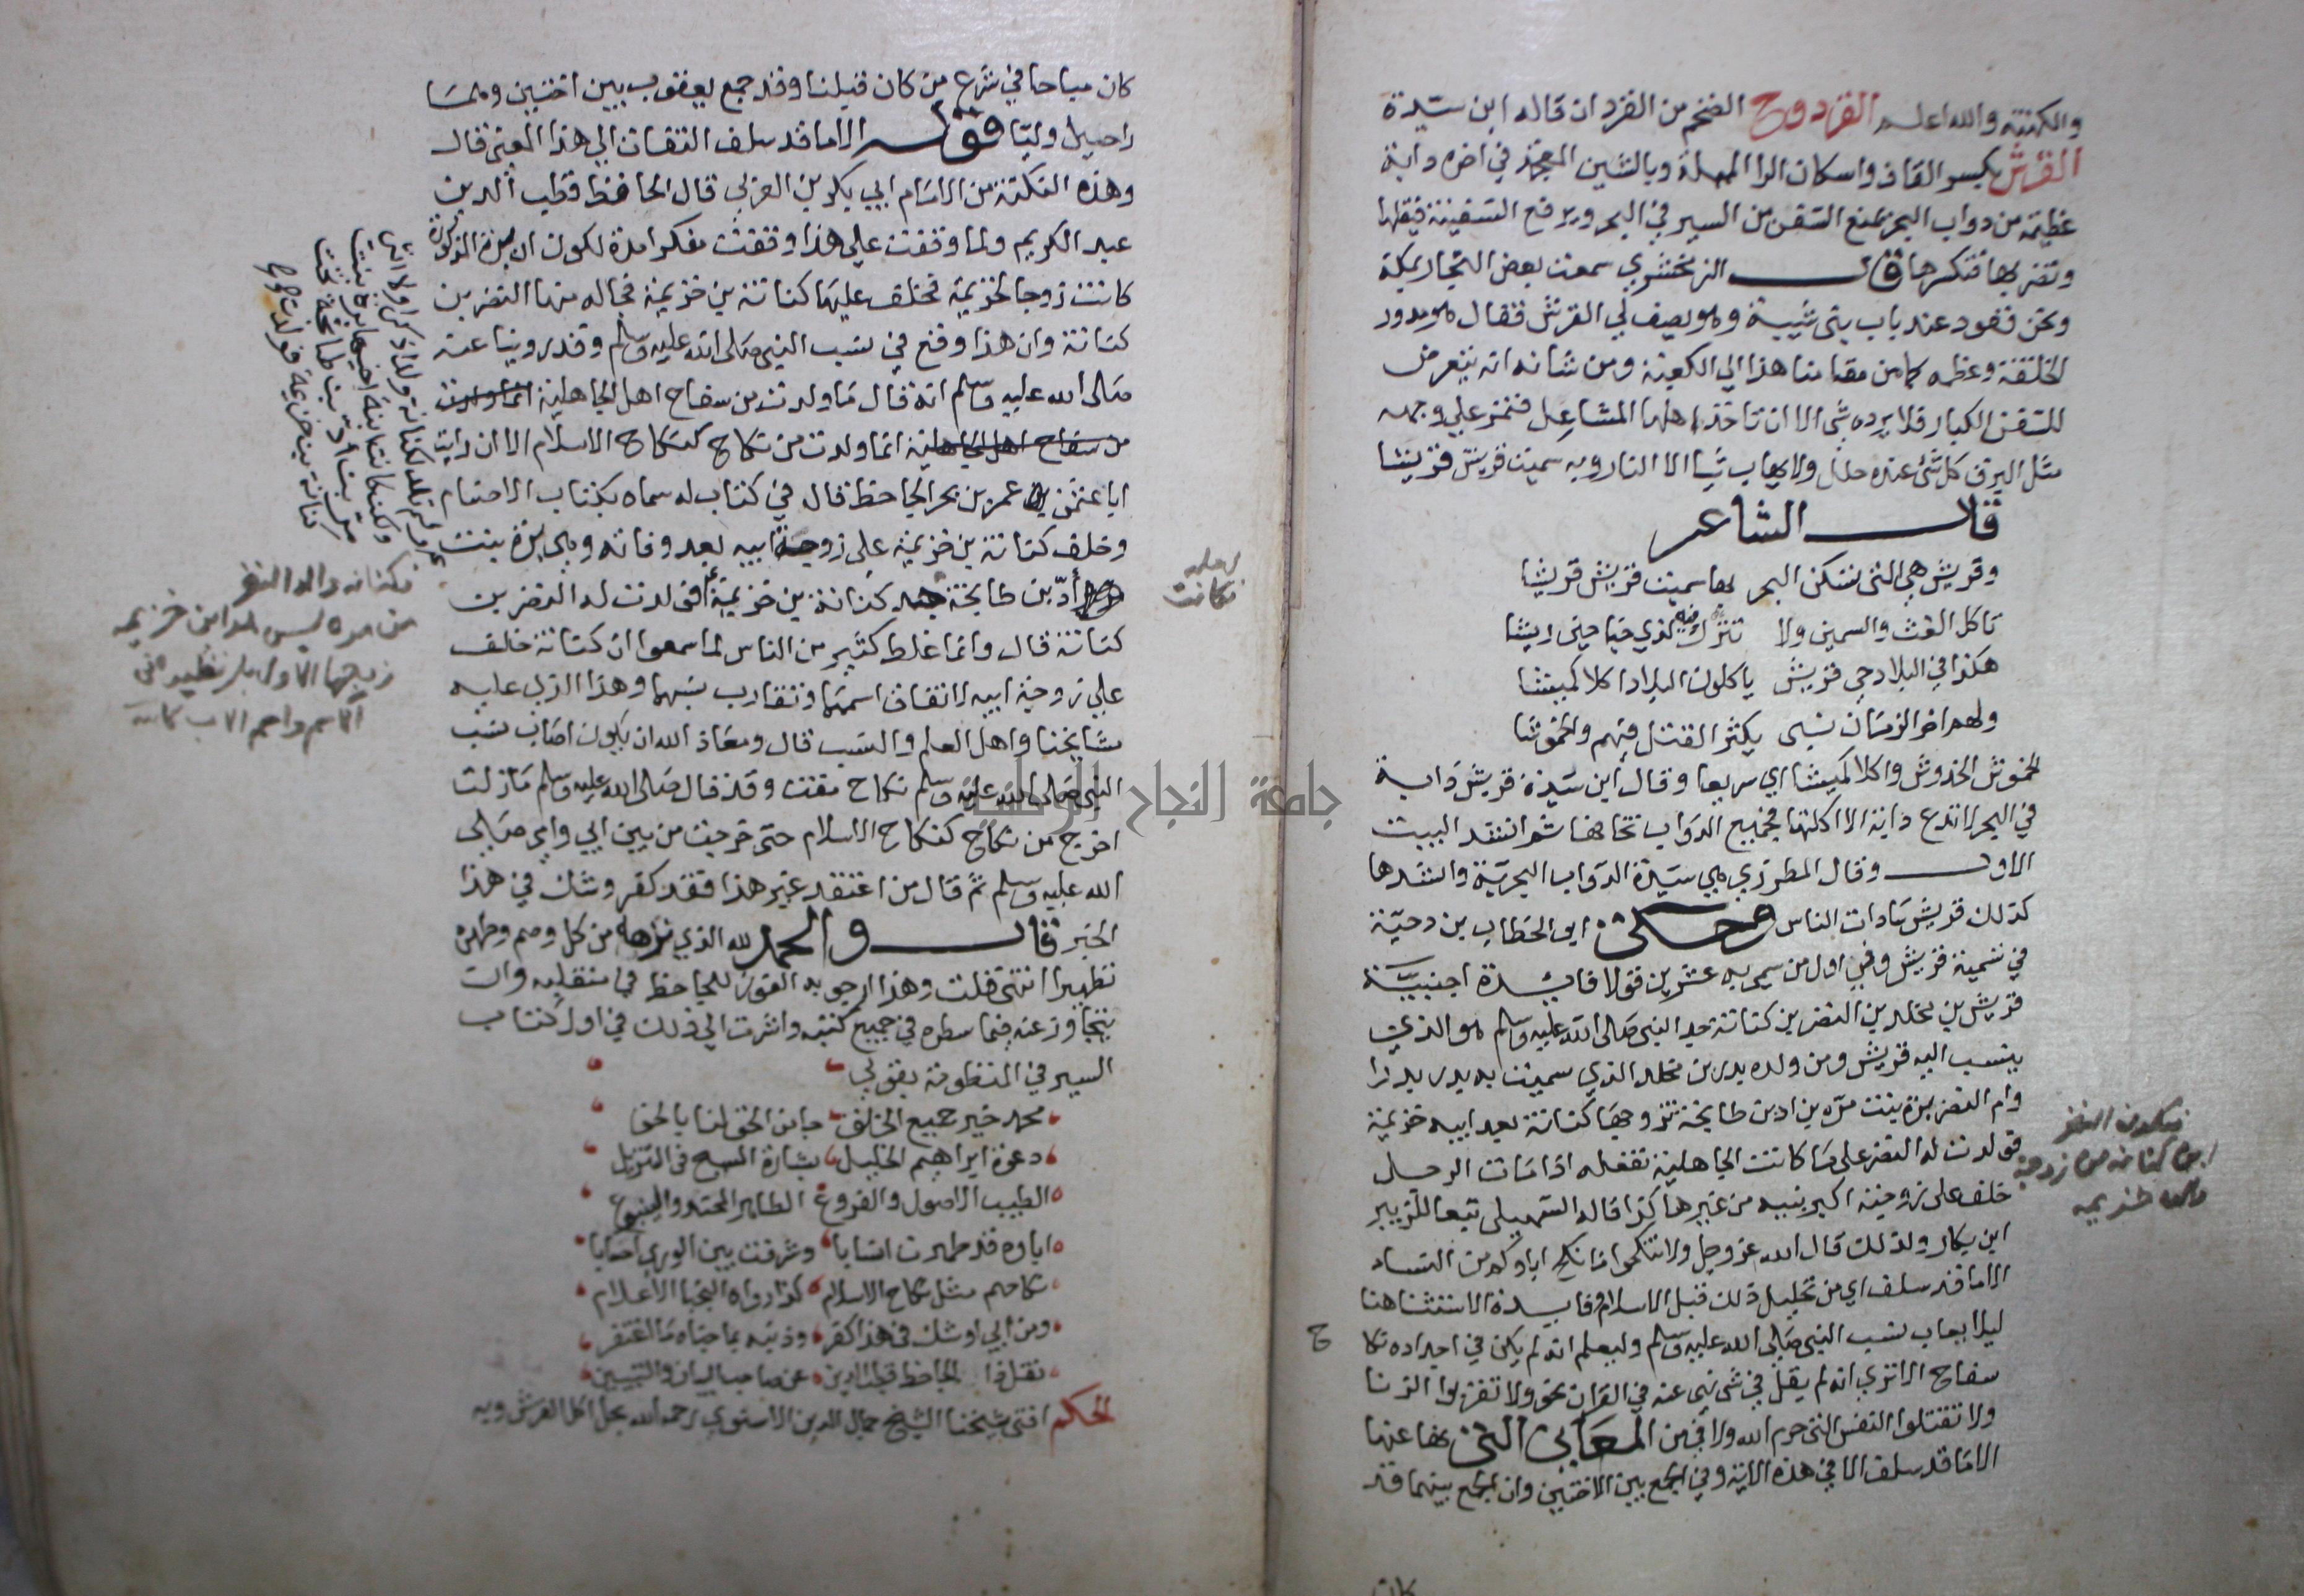 والكنته والله اعلم القردوح الضخم من القردان قاله ابن سيدة
القرش بكسر القاف واسكان الرا المهملة وبالشين المعجمة في اخره دابة
عظيمة من دواب البحر تمنع السفن من السير في البحر وترفع السفينة فيقلبها
وتضربها فتكسرها قال الزمخشري سمعت بعض التجار بمكة
ونحن قعود عند باب بني شيبة وهو يصف لي القرش فقال هو مدور
الخلقة وعظمه كما من مقامنا هذا الي الكعبة ومن شانه انه يتعرض
للسفن الكبار فلا يرده شي الا ان تاخذ اهلها المشاعل فتمر علي وجهه
مثل البرق كل شي عنده جلل ولا يهاب شيا الا النار وبه سميت قريش قريشا
قال الشاعر
وقريش هي التي تسكن البحر بها سميت قريش قريشا
تاكل الغث والسمين ولا تترك فيه لذي جناحين ريشا
هكذا في البلاد حي قريش ياكلون البلاد اكلا كميشا
ولهم اخر الزمان نبي يكثر القتل فيهم والخموشا
الخموش الخدوش واكلا كميشا اي سريعا وقال ابن سيدة قريش دابة
في البحر لا تدع دابة الا اكلتها فجميع الدواب تخافها ثم انشد البيت
الاول وقال المطرزي هي سيدة الدواب البحرية واشدها
كذلك قريش سادات الناس وحكى ابو الخطاب بن دحية
في تسمية قريش وفي اول من سمي به عشرين قولا فايدة اجنبية
قريش بن مخلد بن النضر بن كنانة جد النبي صلى الله عليه وسلم هو الذي
ينسب اليه قريش ومن ولده بدر بن مخلد الذي سميت به بدر بدرا
وام النضر برة بنت مره بن اد بن طابخة تزوجها كنانة بعد ابيه خزيمة
فولدت له النضر على ما كانت الجاهلية تفعله اذا مات الرجل
خلف على زوجته اكبر بنيه من غيرها كذا قاله السهيلي تبعا للزبير
ابن بكار ولذلك قال الله عز وجل ولا تنكحوا ما نكح اباوكم من النساء
الا ما قد سلف اي من تحليل ذلك قبل الاسلام وفايدة الاستثنا هنا
ليلا يعاب نسب النبي صلى الله عليه وسلم وليعلم انه لم يكن في اجداده نكا
ح
سفاح الا تري انه لم يقل في شي نهي عنه في القران نحو ولا تقربوا الزنا
ولا تقتلوا النفس التي حرم الله ولا في من المعاني التي نها عنها
الا ما قد سلف الا في هذه الاية وفي الجمع بين الاختين وان الجمع بينهما قد
كان
فيكون النضر
ابن كنانه من زوجة
والده خزيمه
كان مباحا في شرع من كان قبلنا وقد جمع يعقوب بين اختين وهما
راحيل وليا فقوله الا ما قد سلف التفات الي هذا المعنى قال
وهذه النكتة من الامام ابي بكر بن العربي قال الحافظ قطب الدين
عبد الكريم ولما وقفت علي هذا وقفت مفكرا مدة لكون ان برة المذكورة
كانت زوجا لخزيمة فخلف عليها كنانة بن خزيمة فجاله منها النضر بن
كنانة وان هذا وقع في نسب النبي صلى الله عليه وسلم وقد روينا عنه
صلى الله عليه وسلم انه قال ما ولدت من سفاح اهل الجاهلية انما ولدت
من سفاح اهل الجاهلية انما ولدت من نكاح كنكاح الاسلام الا ان رايت
ابا عثمن عمرو بن بحر الجاحظ قال في كتاب له سماه بكتاب الاصنام
وخلف كنانة بن خزيمة على زوجة ابيه بعد وفاته وهي برة بنت
أد بن طابخة كنانة بن خزيمة فولدت له النضر بن
كنانة قال وانما غلط كثير من الناس لما سمعوا ان كنانة خلف
علي زوجة ابيه لاتفاق اسمهما وتقارب نسبهما وهذا الذي عليه
مشايخنا واهل العلم والنسب قال ومعاذ الله ان يكون اصاب نسب
النبي صلى الله عليه وسلم نكاح مقت وقد قال صلى الله عليه وسلم ما زلت
اخرج من نكاح كنكاح الاسلام حتى خرجت من بين ابي وامي صلى
الله عليه وسلم ثم قال من اعتقد غير هذا فقد كفر وشك في هذا
الخبر قال والحمد لله الذي نزهه من كل وصم وطهره
تطهيرا انتهى قلت وهذا ارجو به الفوز للجاحظ في منقلبه وان
يتجاوز عنه فيما سطره في جميع كتبه واشرت الي ذلك في اول كتاب
السير في المنظومة بقولي
محمد خير جميع الخلق جا من الحق لنا بالحق
دعوة ابراهيم الخليل بشارة المسيح في التنزيل
الطيب الاصول والفروع الطاهر المحتد والينبوع
اباوه قد طهرت انسابا وشرفت بين الوري احسابا
نكاحهم مثل نكاح الاسلام كذا رواه النجبا الاعلام
ومن ابي او شك في هذا كفر وذنبه بما جناه ما اغتفر
نقل ذا الحافظ قطب الدين عن صاحب البيان والتبيين
الحكم افتى شيخنا الشيخ جمال الدين الاسنوي رحمه الله بحل اكل القرش وبه
لعله
فكانت
فكنانه والد النضر
من مره ليس هو ابن خزيمه
زوجها الاول بل نظيره في
الاسم واسم الاب كنانه
جامعة النجاح الوطنية